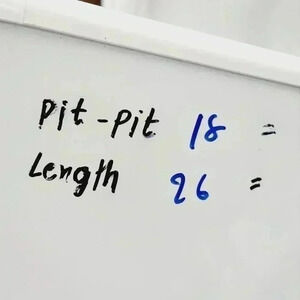 Pit-Pit 18 =
Length 26 =